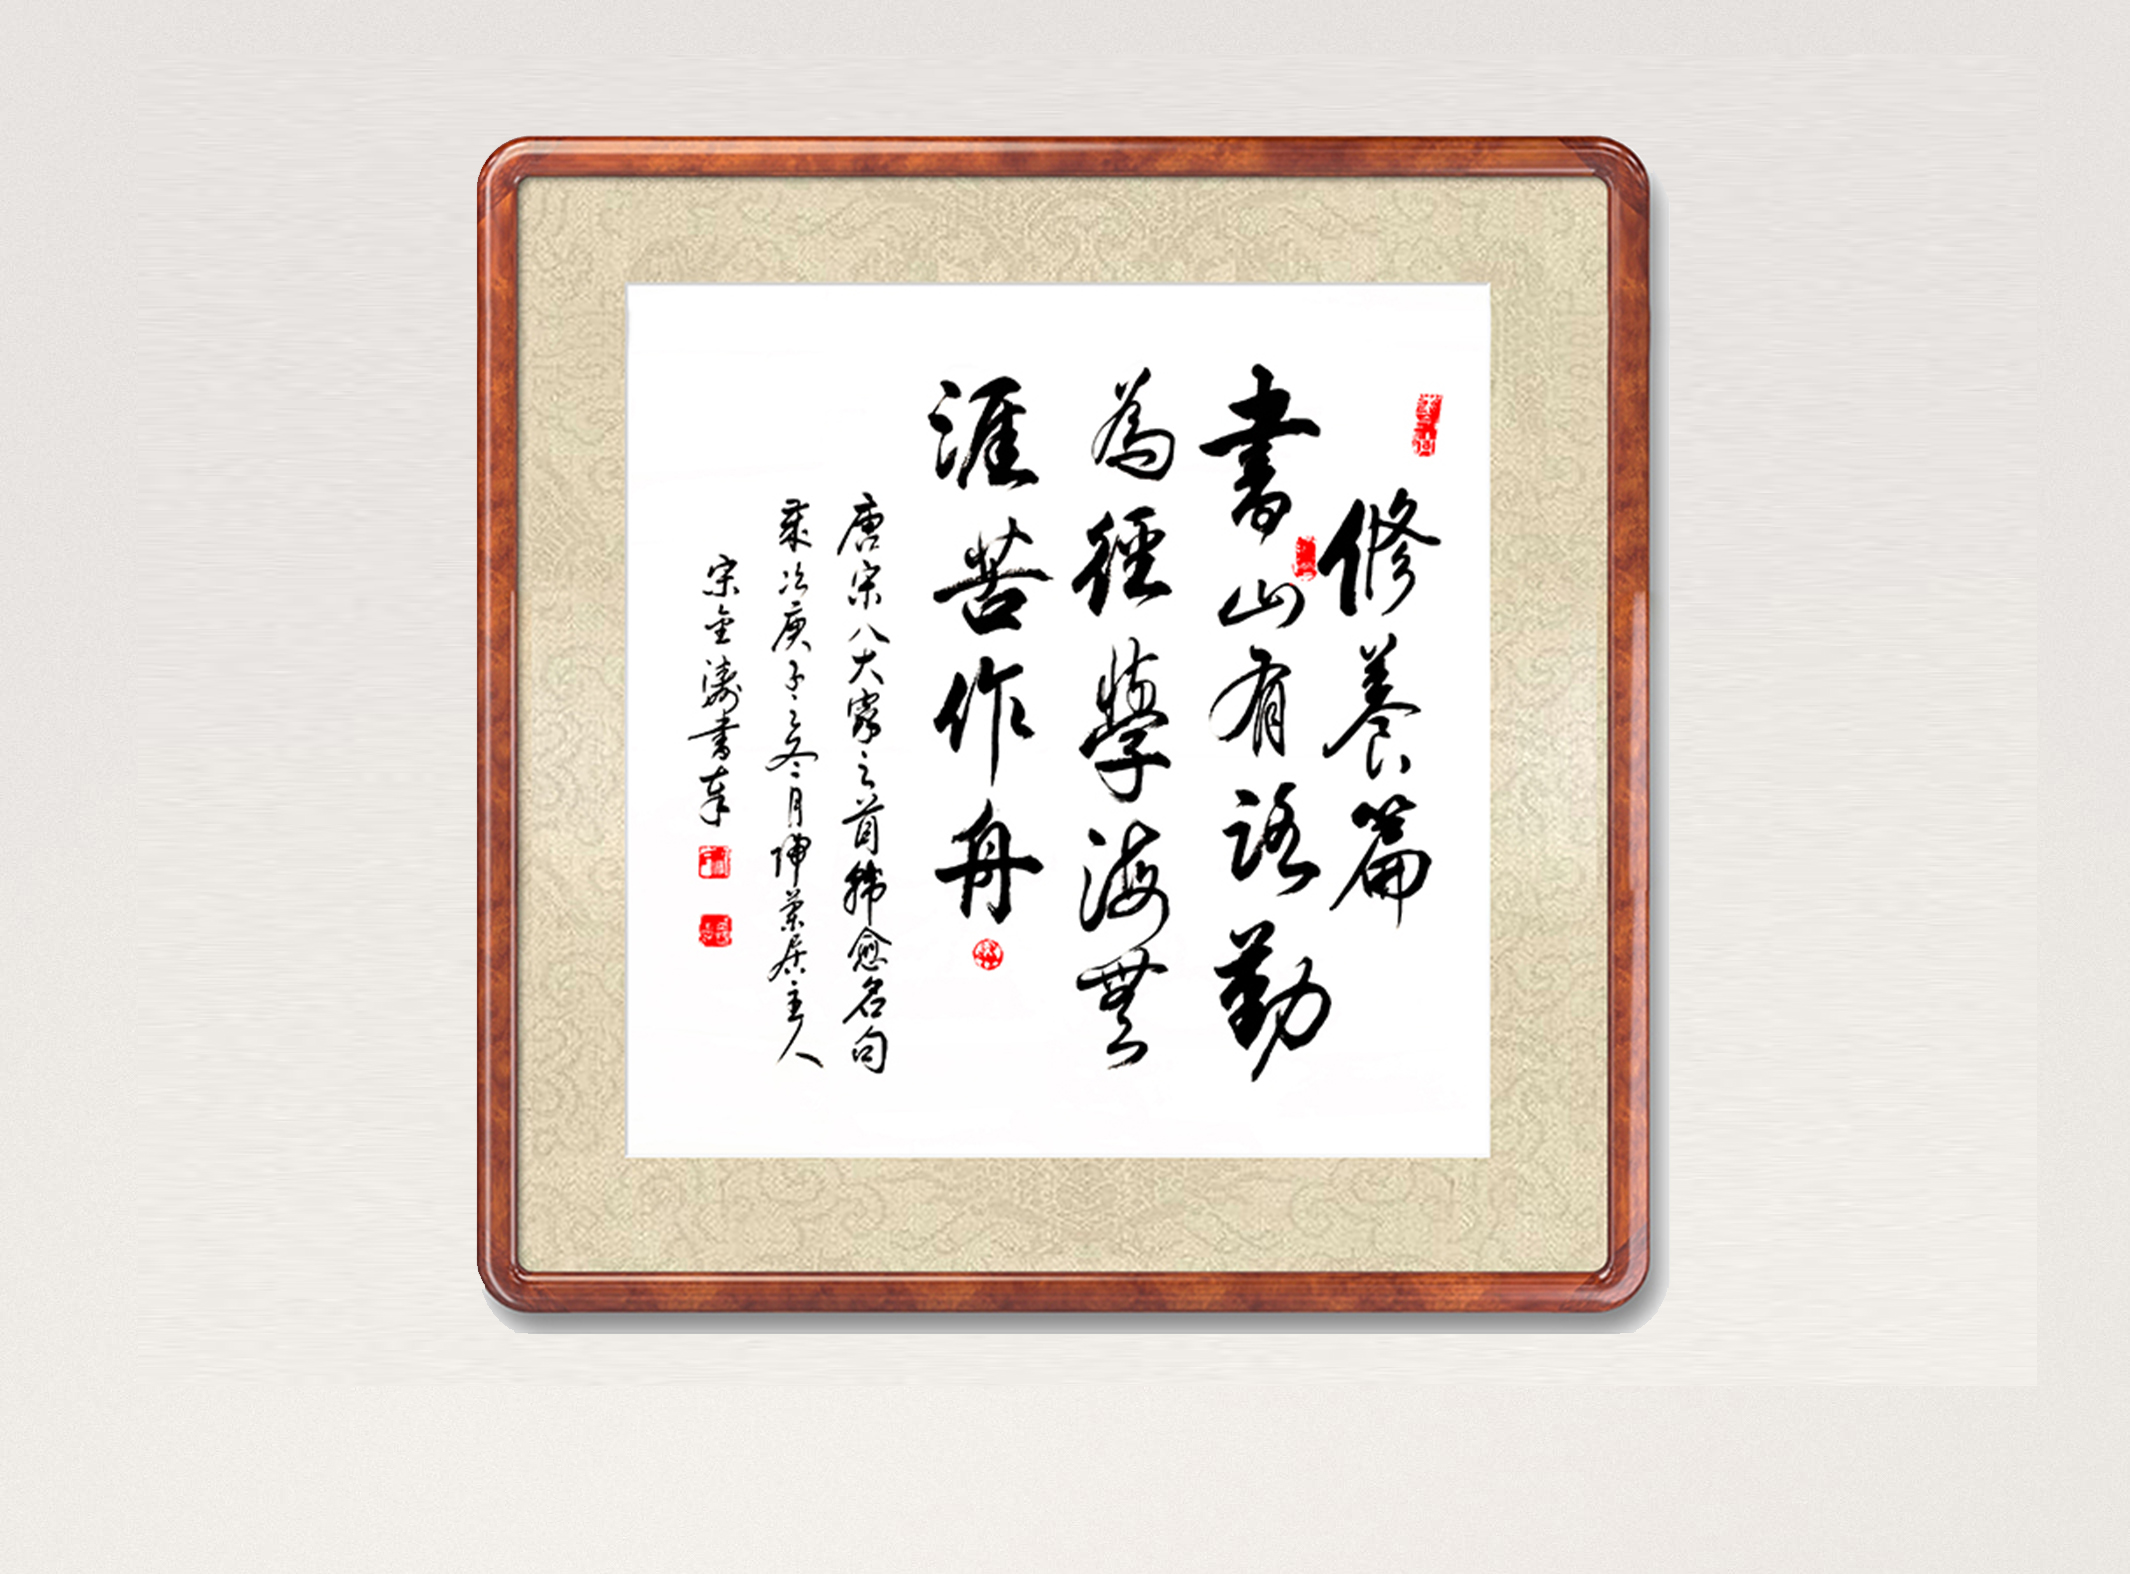 修養篇
書山有路勤
為徑學海無
涯苦作舟
唐宋八大家之首韓愈名句
歲次庚子之冬月蘭居主人
宋金濤書奉